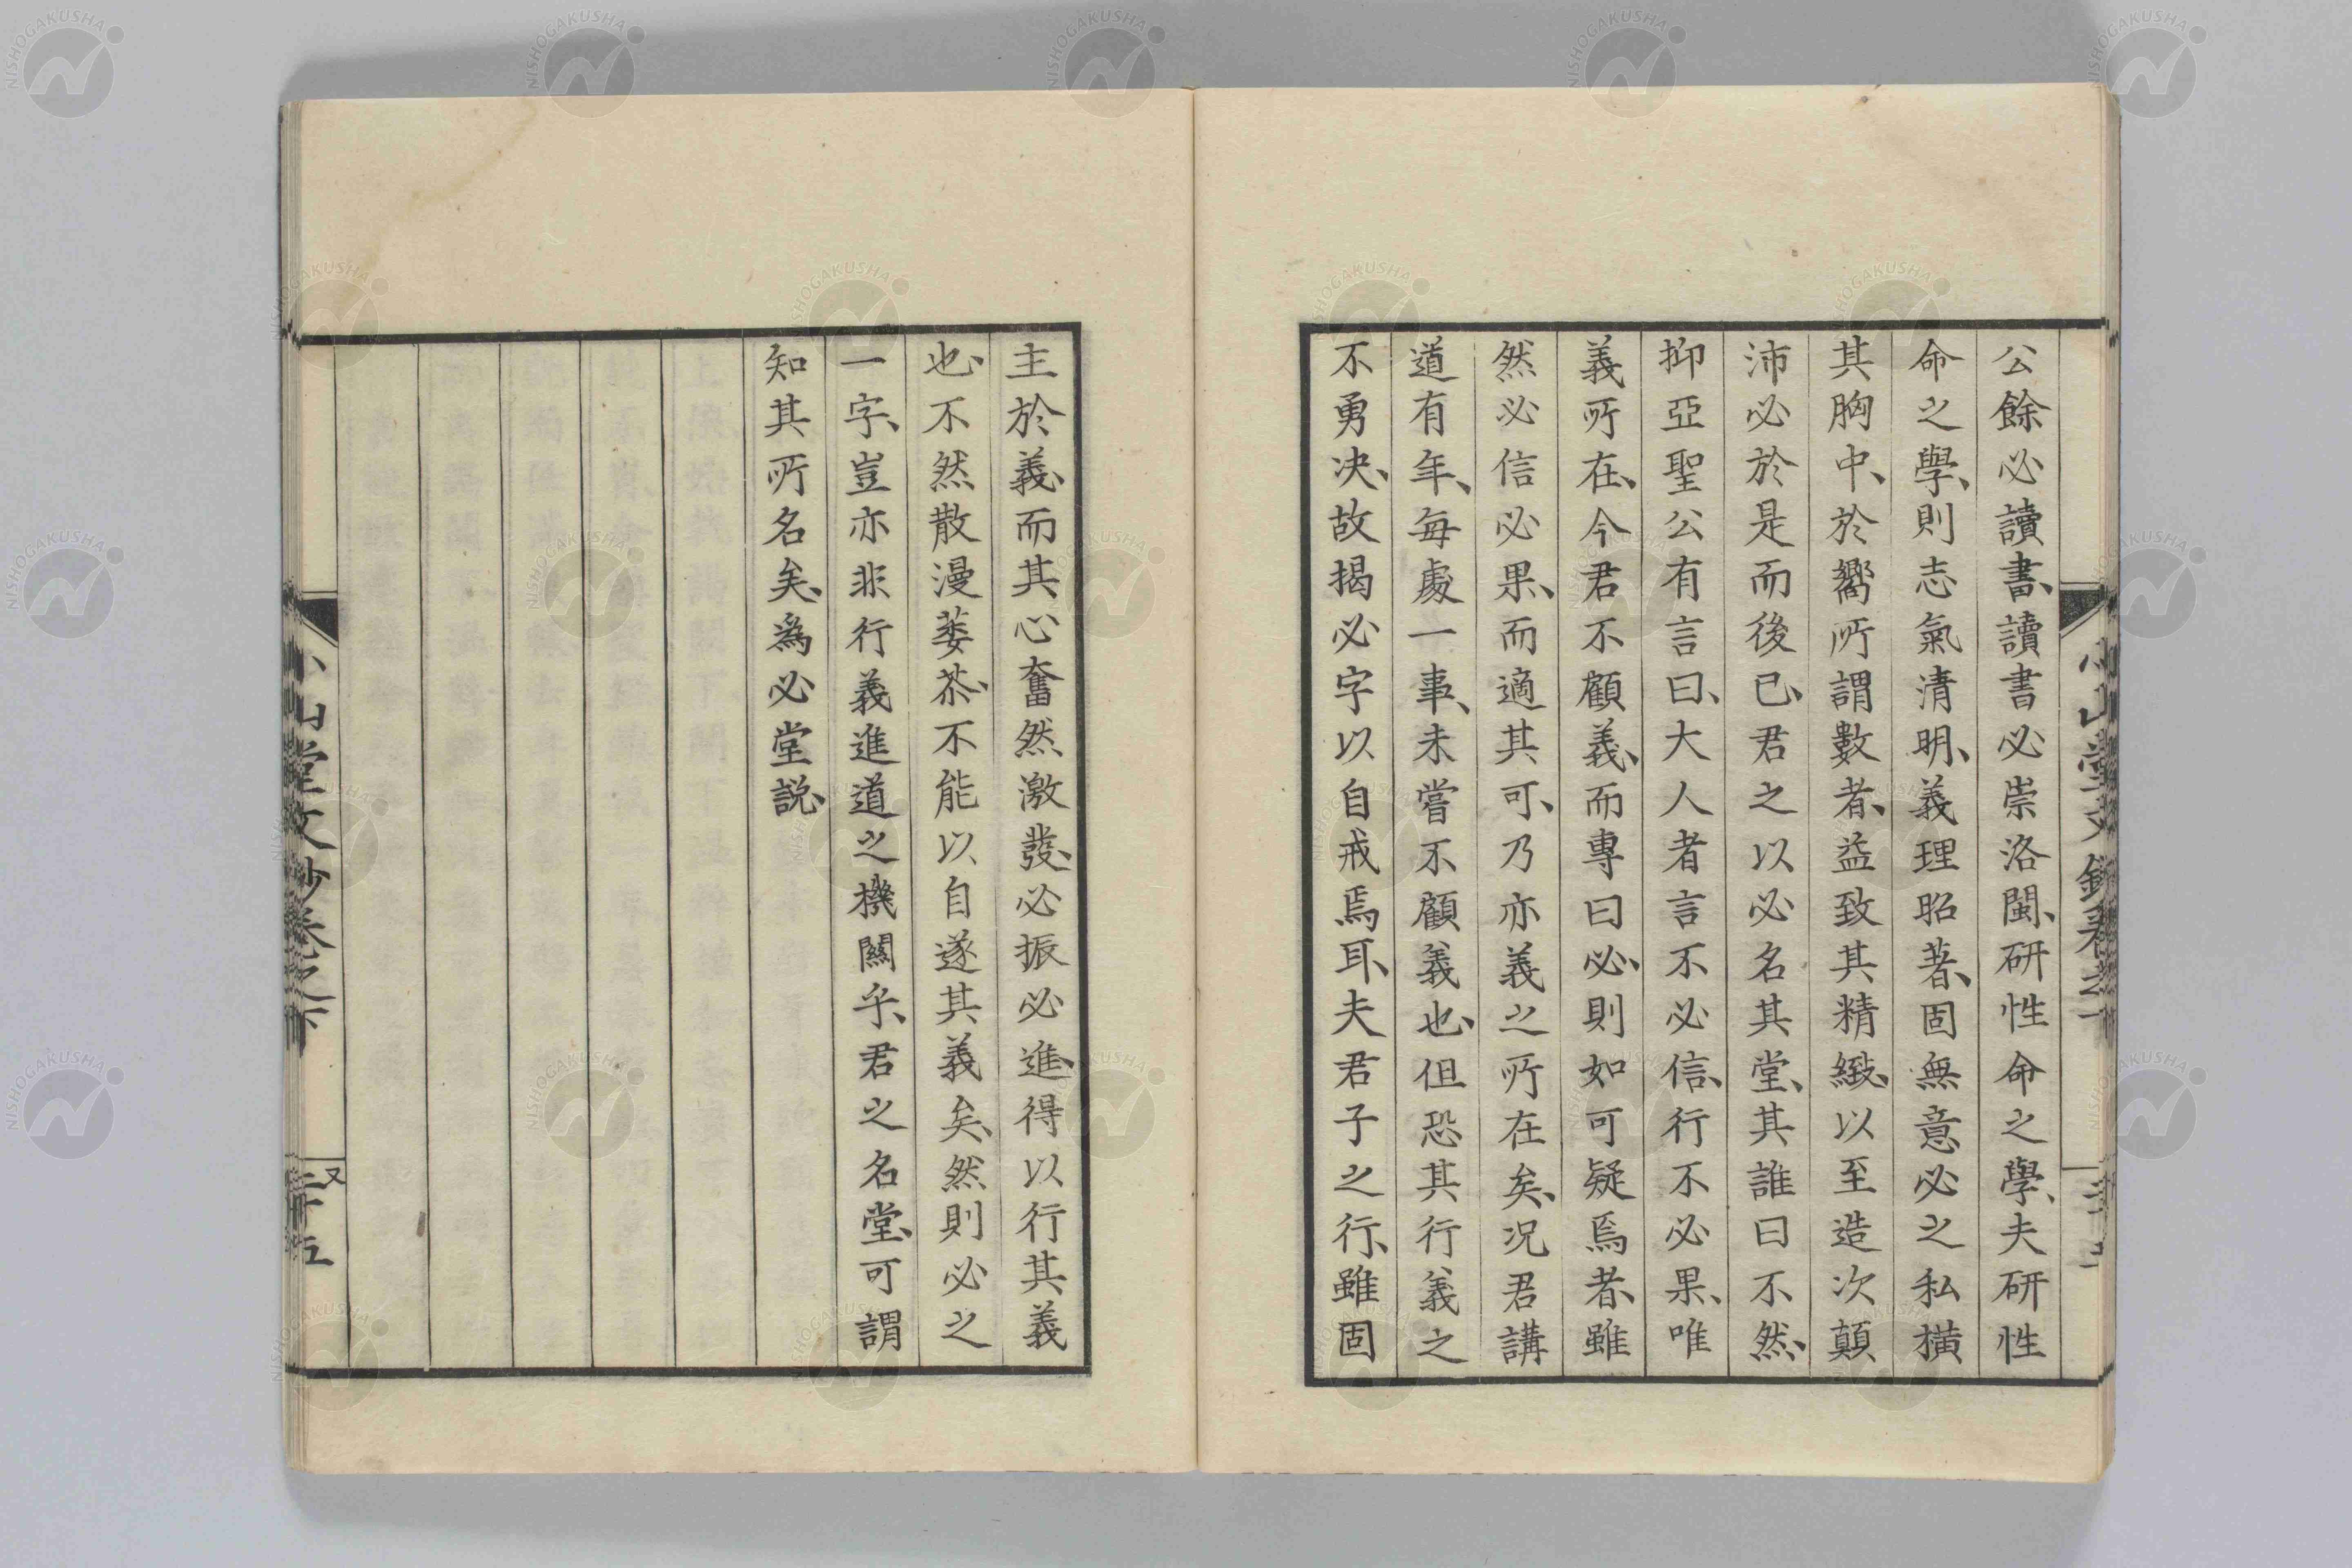 公餘必讀書、讀書必崇洛閩、研性命之學、夫研性
命之學、則志氣清明、義理昭著、固無意必之私橫
其胸中、於嚮所謂數者、益致其精緻、以至造次顛
沛必於是而後已、君之以必名其堂、其誰曰不然、
抑亞聖公有言曰、大人者言不必信、行不必果、唯
義所在、今君不顧義、而專曰必、則如可疑焉者、雖
然必信必果、而適其可、乃亦義之所在矣、況君講
道有年、每處一事、未嘗不顧義也、但恐其行義之
不勇決、故揭必字以自戒焉耳、夫君子之行、雖固
主於義、而其心奮然激發、必振必進、得以行其義
也、不然散漫萎苶、不能以自遂其義矣、然則必之
一字、豈亦非行義進道之機關乎、君之名堂、可謂
知其所名矣、爲必堂説、
小山堂文鈔卷之下
又二十五
NISHOGAKUSHA